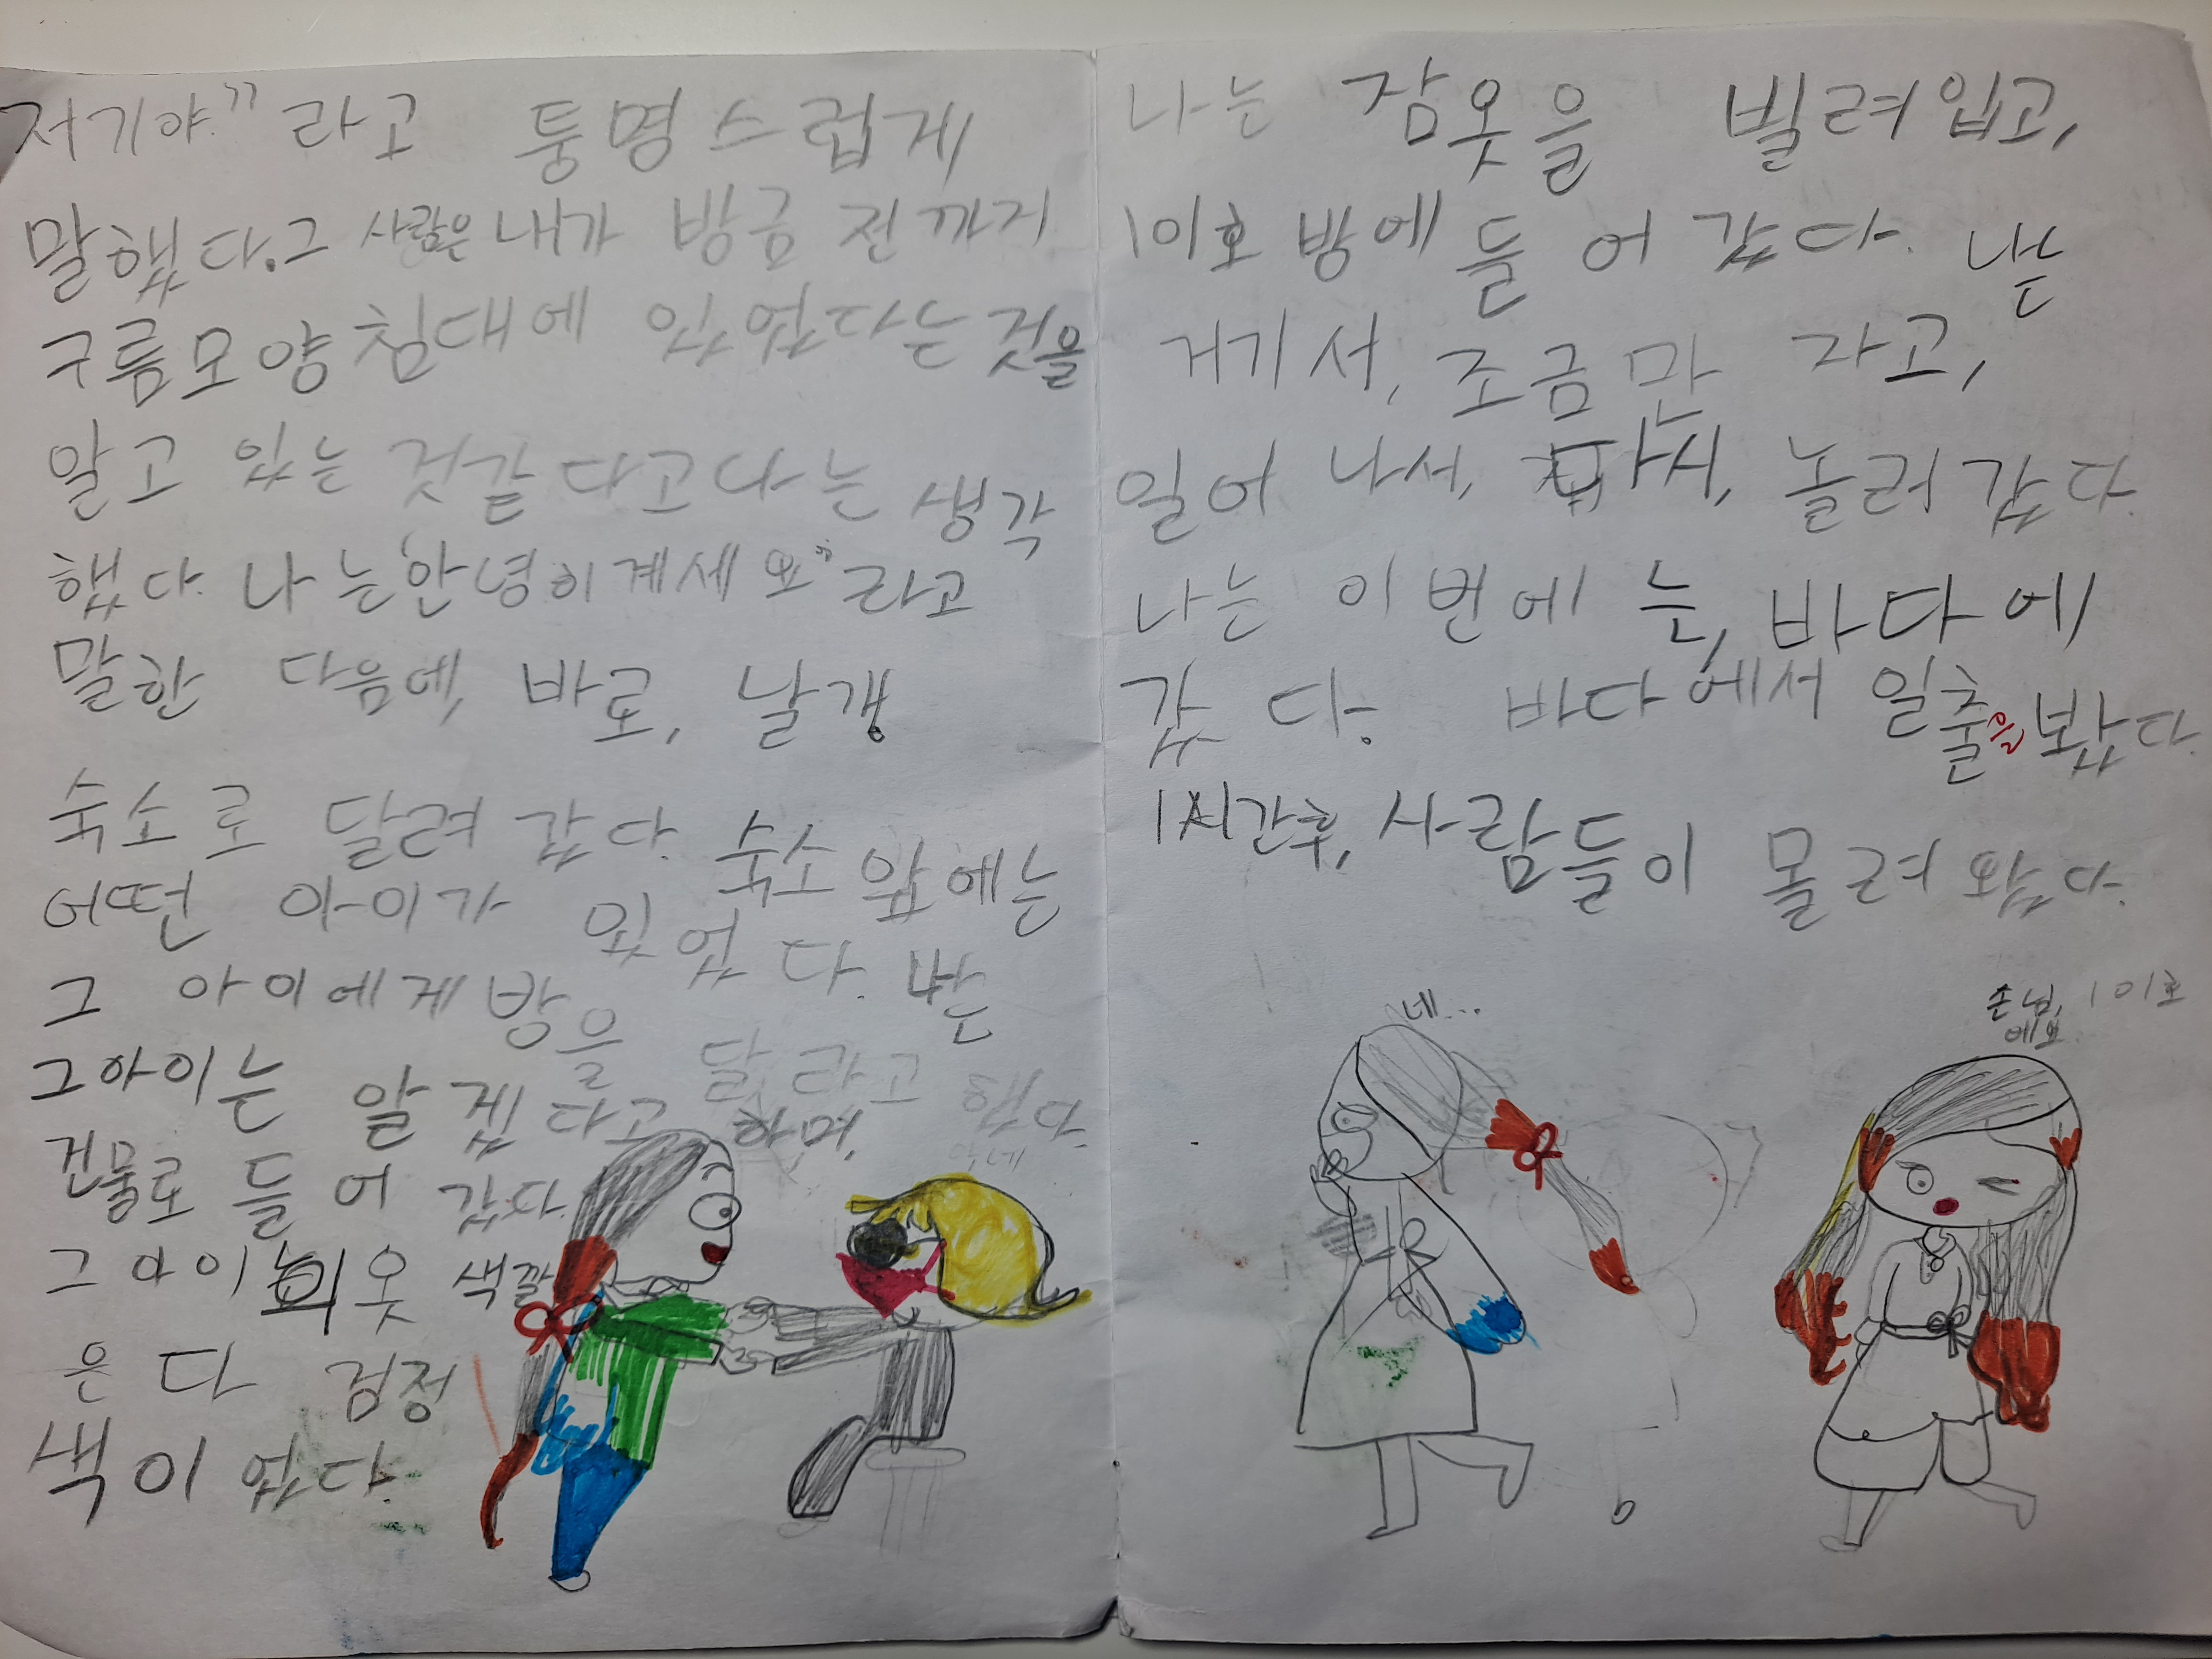 저기야" 라고 퉁명스럽게
말했다. 그 사람은 내가 방금 전까지
구름모양 침대에 있었다는 것을
알고 있는 것같다고 나는 생각
했다. 나는 "안녕히계세요" 라고
말한 다음에, 바로, 날갱
숙소로 달려 갔다. 숙소 앞에는
어떤 아이가 있었다. 난
그 아이에게 방을 달라고 했다.
그아이는 알겠다고 하며,
건물로 들어 갔다.
그 아이의 옷 색깔
은 다 검정
색이 었다.
나는 잠옷을 빌려입고,
101호 방에 들어 갔다. 난
거기서, 조금만 자고,
일어 나서, 놀러 갔다.
나는 이번에 는, 바다에
갔다. 바다에서 일출을 봤다.
1시간후, 사람들이 몰려 왔다.
네...
손님, 101호
에요